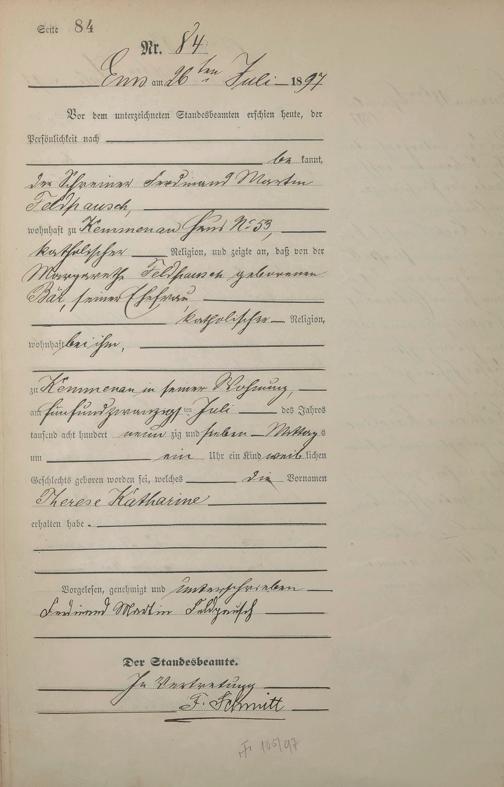 Seite 84
Nr. 84
Ems am 26ten Juli 1897
Vor dem unterzeichneten Standesbeamten erschien heute, der
Persönlichkeit nach
be kannt,
der Schreiner Ferdinand Martin
Feldpausch,
wohnhaft zu Kemmenau Haus No 53,
katholischer Religion, und zeigte an, daß von der
Margarethe Feldpausch geborenen
Bär, seiner Ehefrau,
katholischer Religion,
wohnhaft bei ihm,
zu Kemmenau in seiner Wohnung,
am fünfundzwanzigsten Juli des Jahres
tausend acht hundert neunzig und sieben Mittags
um ein Uhr ein Kind weiblichen
Geschlechts geboren worden sei, welches die Vornamen
Therese Katharine
erhalten habe.
Vorgelesen, genehmigt und unterschrieben
Ferdinand Martin Feldpausch
Der Standesbeamte.
In Vertretung
F. Schmitt